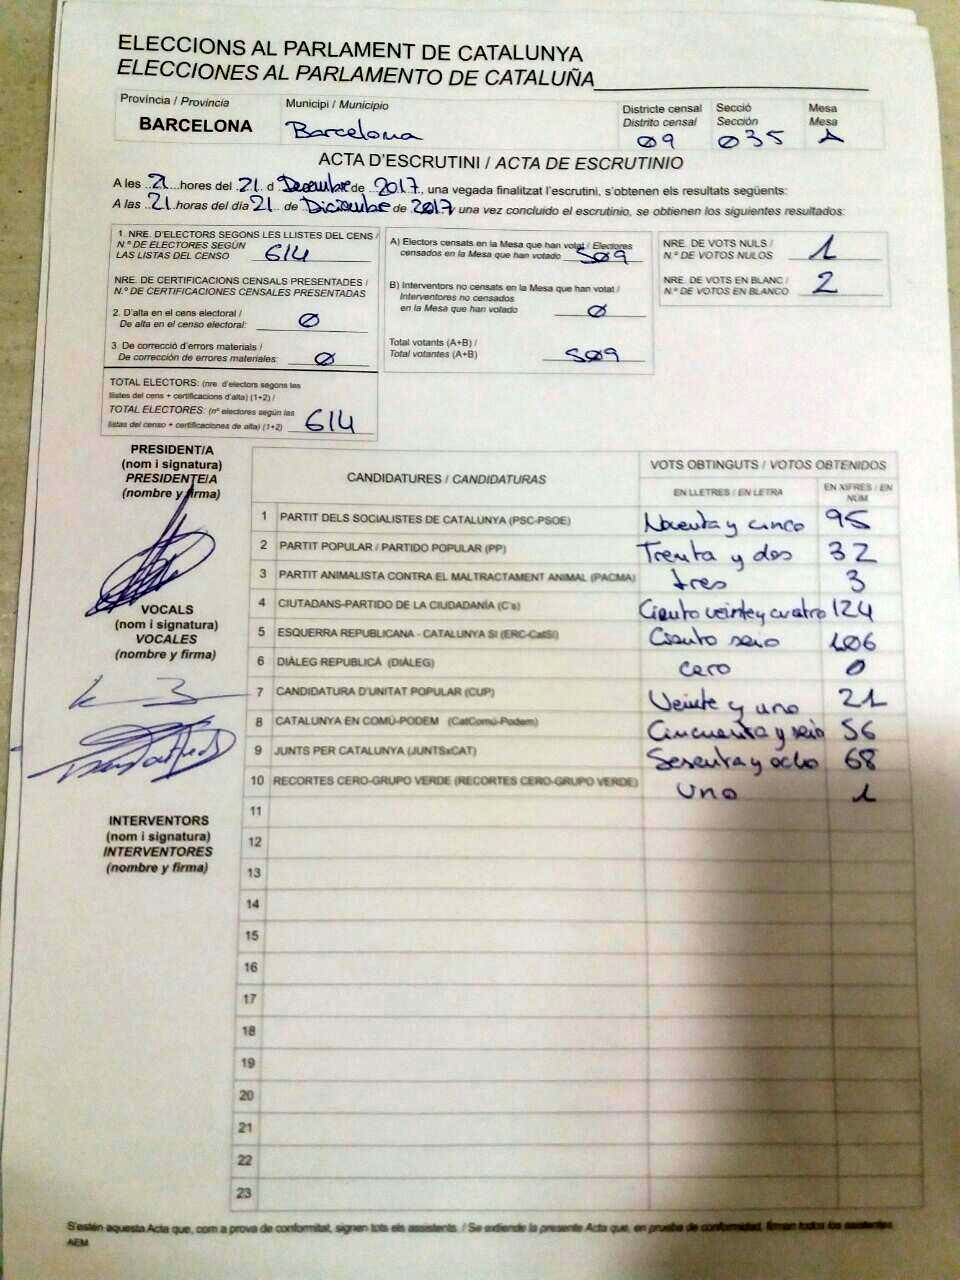 ELECCIONS AL PARLAMENT DE CATALUNYA
ELECCIONES AL PARLAMENTO DE CATALUÑA
Província / Provincia Municipi / Municipio Districte censal Secció Mesa
Distrito censal Sección Mesa
BARCELONA Barcelona 09 035 A
ACTA D'ESCRUTINI / ACTA DE ESCRUTINIO
A les 21 hores del 21 d Desembre de 2017, una vegada finalitzat l'escrutini, s'obtenen els resultats següents:
A las 21 horas del día 21 de Diciembre de 2017 una vez concluido el escrutinio, se obtienen los siguientes resultados:
1. NRE. D'ELECTORS SEGONS LES LLISTES DEL CENS /
N.º DE ELECTORES SEGÚN
LAS LISTAS DEL CENSO 614
NRE. DE CERTIFICACIONS CENSALS PRESENTADES /
N.º DE CERTIFICACIONES CENSALES PRESENTADAS
2. D'alta en el cens electoral /
De alta en el censo electoral: 0
3. De correcció d'errors materials /
De corrección de errores materiales: 0
TOTAL ELECTORS: (nre. d'electors segons les
llistes del cens + certificacions d'alta) (1+2) /
TOTAL ELECTORES: (nº electores según las
listas del censo + certificaciones de alta) (1+2) 614
A) Electors censats en la Mesa que han votat / Electores
censados en la Mesa que han votado 509
B) Interventors no censats en la Mesa que han votat /
Interventores no censados
en la Mesa que han votado 0
Total votants (A+B) /
Total votantes (A+B) 509
NRE. DE VOTS NULS /
N.º DE VOTOS NULOS 1
NRE. DE VOTS EN BLANC /
N.º DE VOTOS EN BLANCO 2
PRESIDENT/A
(nom i signatura)
PRESIDENTE/A
(nombre y firma)
VOCALS
(nom i signatura)
VOCALES
(nombre y firma)
INTERVENTORS
(nom i signatura)
INTERVENTORES
(nombre y firma)
CANDIDATURES / CANDIDATURAS VOTS OBTINGUTS / VOTOS OBTENIDOS
EN LLETRES / EN LETRA EN XIFRES / EN NÚM
1 PARTIT DELS SOCIALISTES DE CATALUNYA (PSC-PSOE) Noventa y cinco 95
2 PARTIT POPULAR / PARTIDO POPULAR (PP) Trenta y dos 32
3 PARTIT ANIMALISTA CONTRA EL MALTRACTAMENT ANIMAL (PACMA) tres 3
4 CIUTADANS-PARTIDO DE LA CIUDADANÍA (C's) Ciento veinte y cuatro 124
5 ESQUERRA REPUBLICANA - CATALUNYA SI (ERC-CatSí) Ciento seis 106
6 DIÀLEG REPUBLICÀ (DIÀLEG) cero 0
7 CANDIDATURA D'UNITAT POPULAR (CUP) Veinte y uno 21
8 CATALUNYA EN COMÚ-PODEM (CatComú-Podem) Cincuenta y seis 56
9 JUNTS PER CATALUNYA (JUNTSxCAT) Sesenta y ocho 68
10 RECORTES CERO-GRUPO VERDE (RECORTES CERO-GRUPO VERDE) uno 1
11
12
13
14
15
16
17
18
19
20
21
22
23
S'estén aquesta Acta que, com a prova de conformitat, signen tots els assistents. / Se extiende la presente Acta que, en prueba de conformidad, firman todos los asistentes
AEM